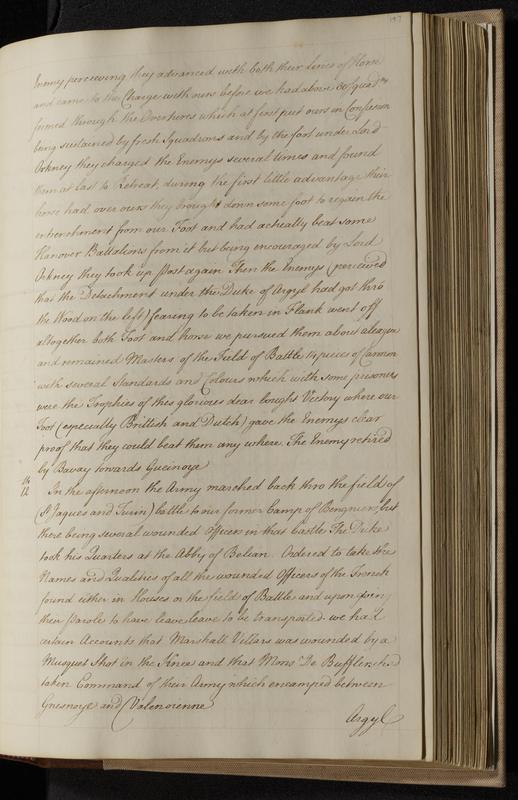 147
Enemy perceiving they advanced with both their lines of Horse
and came to the Charge with ours before we had above 30 Squad.ns
formed through the Overtures which at first put ours in Confusion
being sustained by fresh Squadrons and by the foot under Lord
Orkney they charged the Enemys several times and found
them at last to Retreat, during the first little advantage their
horse had over ours they brought down some foot to regain the
entrenchment from our Foot and had actually beat some
Hanover Battalions from it but being encouraged by Lord
Orkney they took up post again Then the Enemys (perceived
that the Detachment under the Duke of Argyl had got thro
the Wood on the left) fearing to be taken in Flank went off
altogether both Foot and horse we pursued them about a league
and remained Masters of the Field of Battle 14 pieces of Cannon
with several Standards and Colours which with some prisoners
were the Trophies of this glorious dear bought Victory where our
Foot (especially Brittish and Dutch) gave the Enemys clear
proof that they could beat them any where. The Enemy retired
by Bavay towards Guesnoye
12 In the afternoon the Army marched back thro the field of
(St Jaques and Turin) battle to our former Camp of Bengnies, but
there being several wounded Officers in that Castle The Duke
took his Quarters at the Abby of Belian. Ordered to take the
Names and Qualities of all the wounded Officers of the French
found either in Houses or the field of Battle and upon giving
their parole to have leave leave to be transported. we had
certain Accounts that Marshall Villars was wounded by a
Musquet Shot in the Knee and that Mons.r De Bufflers had
taken Command of their Army which encamped between
Guesnoye and Valencienne
Argyl